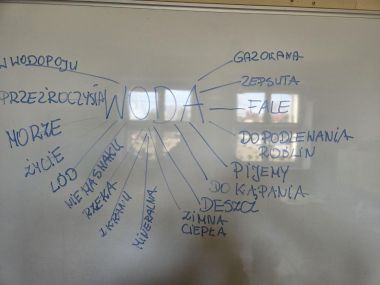 W WODOPOJU
PRZEZROCZYSTA
MORZE
ŻYCIE
LÓD
NIE MA SMAKU
RZEKA
Z KRANU
MINERALNA
WODA
GAZOWANA
ZEPSUTA
FALE
DO PODLEWANIA
ROŚLIN
PIJEMY
DO KĄPANIA
DESZCZ
ZIMNA
CIEPŁA